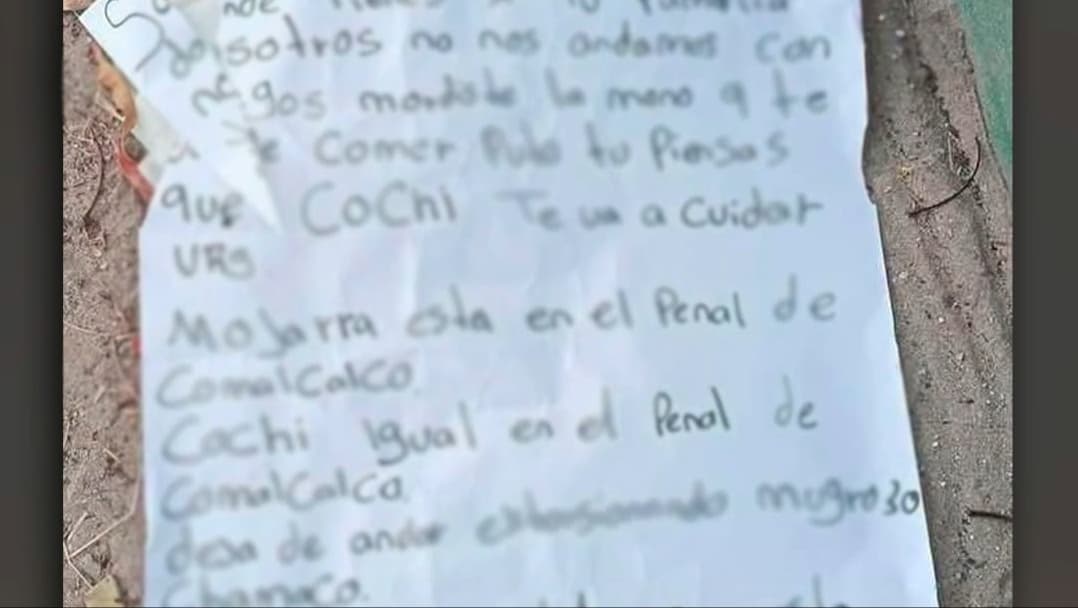 nosotros no nos andamos con
mordiste la mano q te
de comer Puto tu Piensas
que CoChi Te va a cuidar
VRS
MoJarra esta en el Penal de
ComalCalco.
Cochi Igual en el Penal de
ComalCalco.
deja de andar extorsionando mugroso
Chamaco.